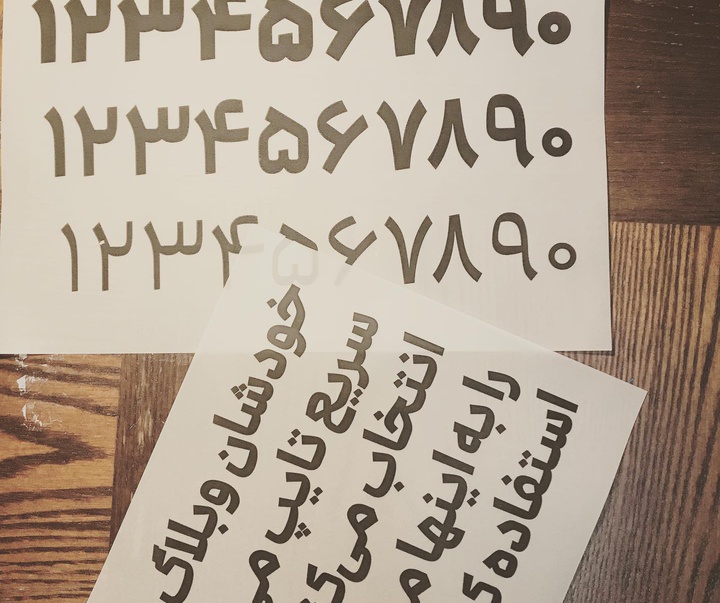 ۱۲۳۴۵۶۷۸۹۰
۱۲۳۴۵۶۷۸۹۰
۱۲۳۴۵۶۷۸۹۰
خودشان وبلاگ
سریع تایپ
انتخاب می‌
را به اینها
استفاده